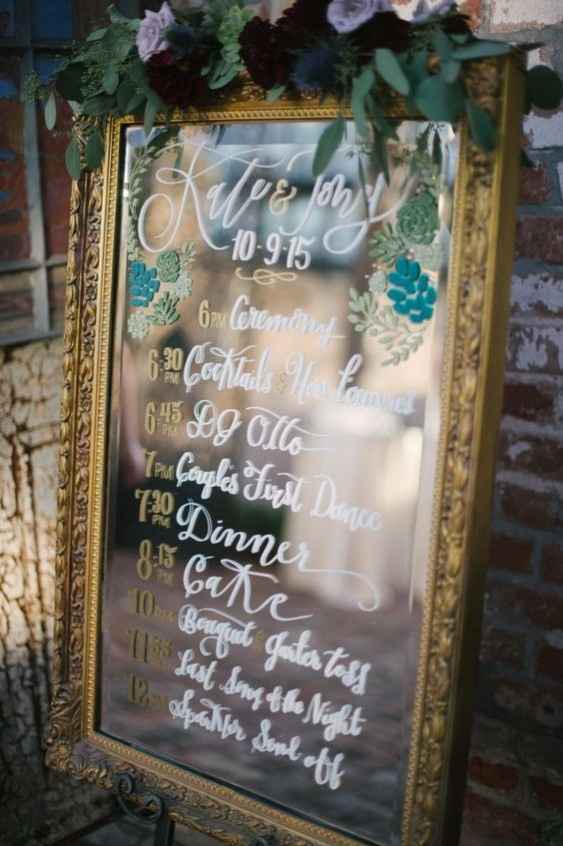 Kate & Tony
10-9-15
6PM Ceremony
6:30PM Cocktails & Hors
6:45PM DJ Otto
7PM Couple's First Dance
7:30PM Dinner
8:15PM Cake
10PM Bouquet & Garter toss
Last Song of the Night
Sparkler Send off